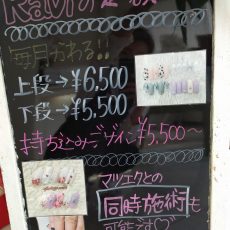 Ravi
毎月かわる!!
上段→¥6,500
下段→¥5,500
持ち込みデザイン¥5,500〜
マツエクとの
同時施術も
可能です♡